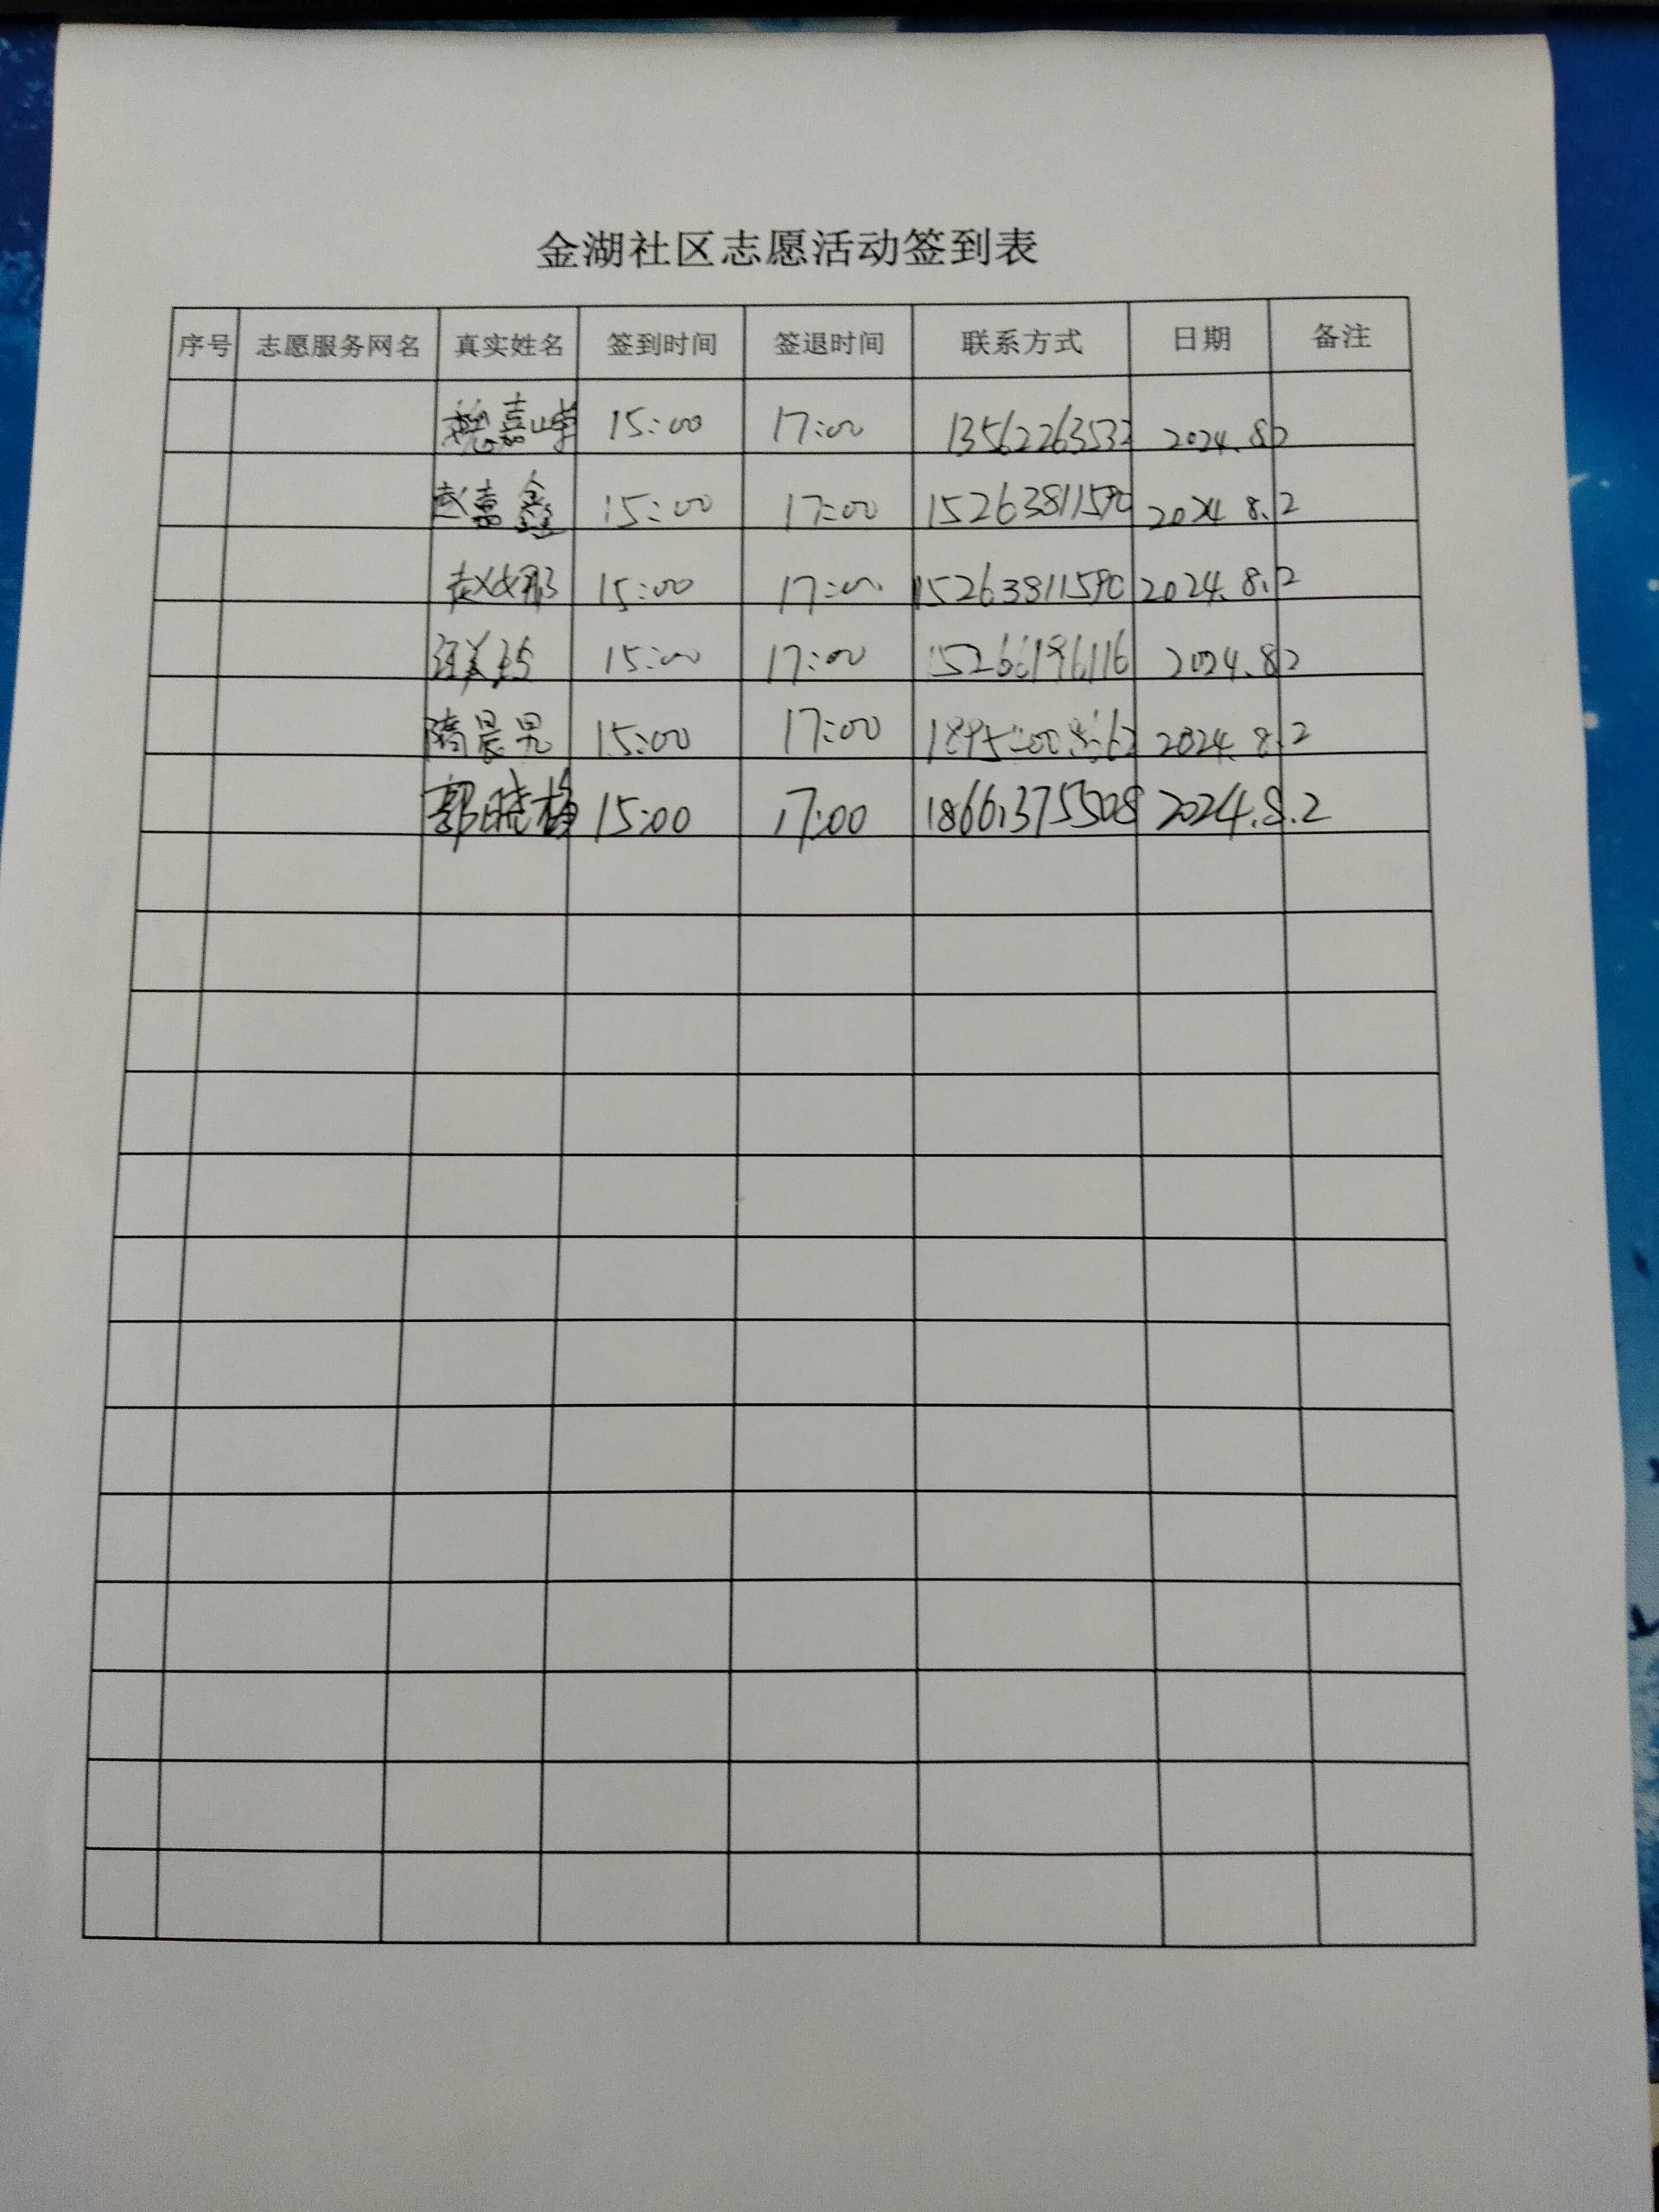 金湖社区志愿活动签到表
序号 志愿服务网名 真实姓名 签到时间 签退时间 联系方式 日期 备注
15:00 17:00 13562263532 2024.8.2
赵嘉鑫 15:00 17:00 15263811590 2024 8.2
赵娜 15:00 17:00 15263811590 2024.8.2
15:00 17:00 15266196116 2024.8.2
隋晨 15:00 17:00 2024.8.2
郭晓梅 15:00 17:00 18661375508 2024.8.2